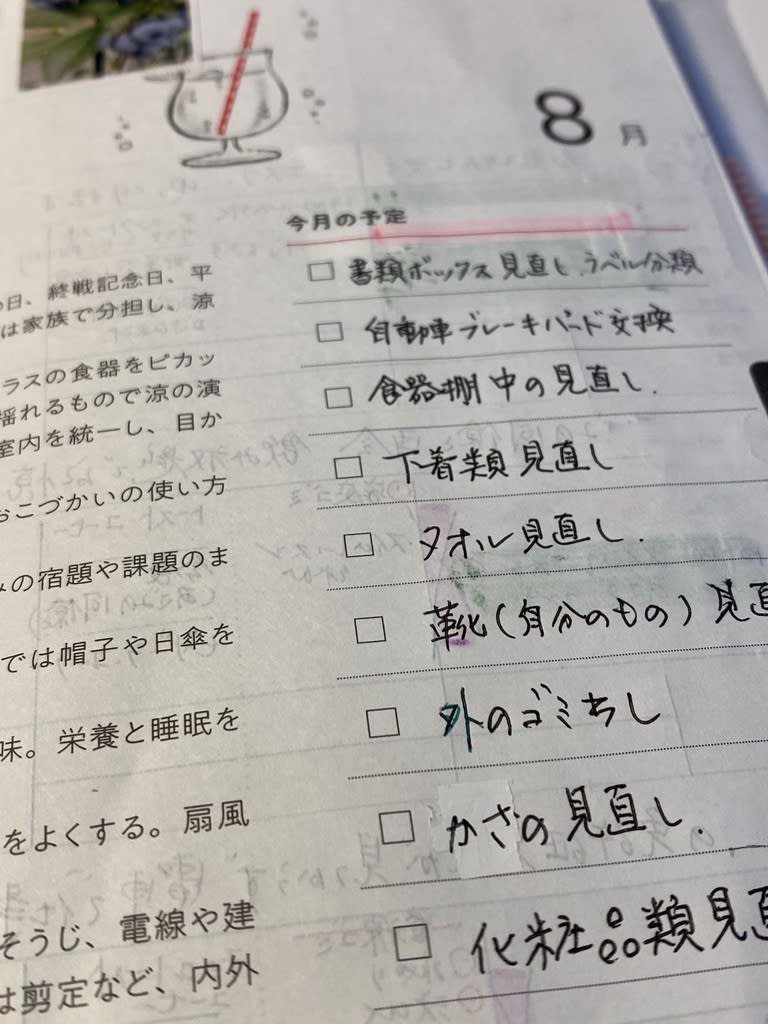 8月
今月の予定
書類ボックス見直し、ラベル分類
自動車ブレーキパッド交換
食器棚中の見直し.
下着類見直し
タオル見直し.
靴(自分のもの)見直
外のゴミおし
かさの見直し.
化粧品類見直
の日、終戦記念日、平
は家族で分担し、涼
ラスの食器をピカッ
揺れるもので涼の演
室内を統一し、目か
おこづかいの使い方
みの宿題や課題のま
では帽子や日傘を
味。栄養と睡眠を
をよくする。扇風
そうじ、電線や建
は剪定など、内外